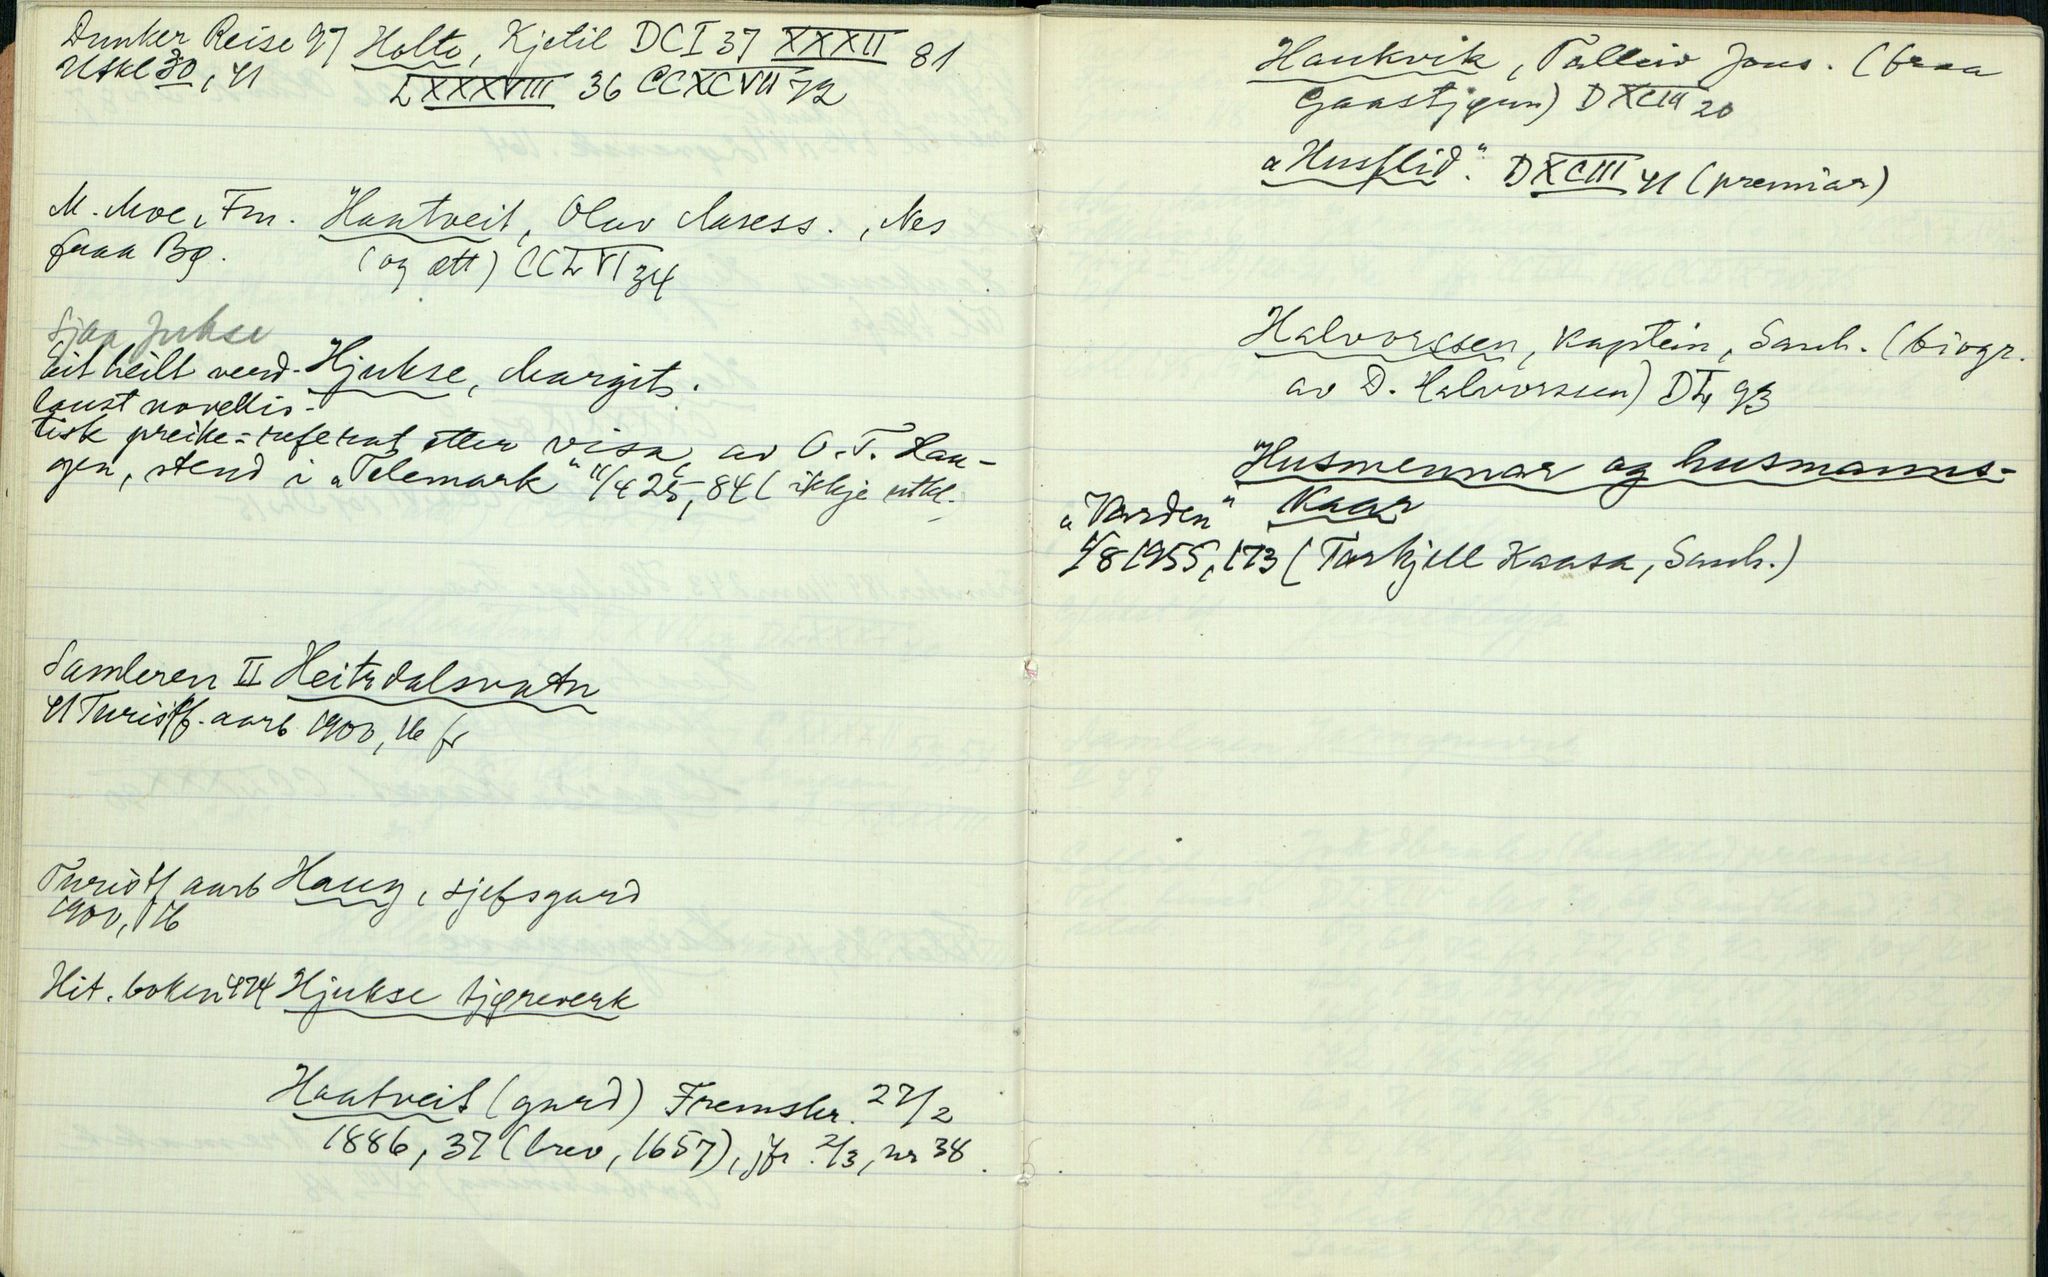 Dunker Reise 97 Holto, Kjetil DCI 37 XXXII 81
Utkl 30, 41 LXXXVIII 36 CCXCVII 72
M. Moe, Fm. Haatveit, Olav Aaress., Nes
fraa Bø. (og ætt) CCLVI 34
Sjaa Jukse
Eit heilt verd- Hjukse, Margit.
laust novellis-
tisk preike-referat etter visa av O. T. Hau-
gen, stend i „Telemark" 11/4 25, 84 (ikkje utkl.
Samleren II Heitrdalsvatn
41 Turistf. aarb. 1900, 16 fr
Turistf aarb Haug, sjefsgard
1900, 16
Hit. boken 474 Hjukse tjøreverk
Haatveit (gard) Fremskr. 27/2
1886, 37 (brev, 1657), jfr. 2/3, nr 38.
Haukvik, Talleiv Jons. (fraa
Gaastjønn) DXCIII 20
„Husflid". DXCIII 41 (premiar)
Halvorssen, Kaptein, Sauh. (biogr.
av D. Halvorssen) DL 93
Husmennar og husmanns-
„Varden" Kaar
4/8 1955, 173 (Torkjell Kaasa, Sauh.)